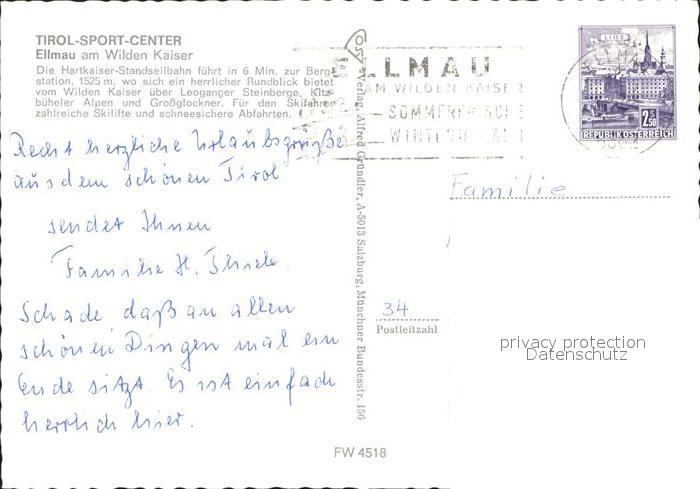 TIROL-SPORT-CENTER
Ellmau am Wilden Kaiser
Die Hartkaiser-Standseilbahn führt in 6 Min. zur Berg-
station, 1525 m, wo sich ein herrlicher Rundblick bietet
vom Wilden Kaiser über Leoganger Steinberge, Kitz-
büheler Alpen und Großglockner. Für den Skifahrer
zahlreiche Skilifte und schneesichere Abfahrten.
Recht herzliche Urlaubsgrüße
aus dem schönen Tirol
sendet Ihnen
Familie H. Thiele.
Schade daß an allen
schönen Dingen mal ein
Ende sitzt. Es ist einfach
herrlich hier.
Verlag Alfred Gründler, A-5013 Salzburg, Münchner Bundesstr. 156
ELLMAU
AM WILDEN KAISER
SOMMERFRISCHE
LINZ
2.50
REPUBLIK ÖSTERREICH
Familie
34
Postleitzahl
privacy protection
Datenschutz
FW 4518